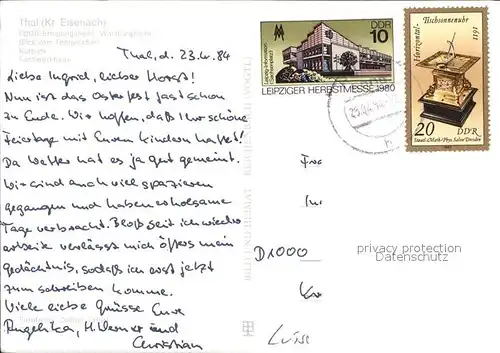 Thal (Kr. Eisenach)
Thal, d. 23.4.84
Liebe Ingrid, lieber Horst!
Nun ist das Osterfest fast schon
zu Ende. Wir hoffen, daß Ihr schöne
Feiertage mit Euren Kindern hattet!
Das Wetter hat es ja gut gemeint.
Wir sind auch viel spazieren
gegangen und haben erholsame
Tage verbracht. Bloß seit ich wieder
arbeite verlässt mich öfters mein
Gedächtnis, sodaß ich erst jetzt
zum schreiben komme.
Viele liebe Grüsse Eure
Angelika, H. Werner und
Christian
DDR
10
LEIPZIGER HERBSTMESSE 1980
Horizontal-
Tischsonnenuhr
1611
20 DDR
Staatl. Math.-Phys. Salon Dresden
D1000
privacy protection
Datenschutz